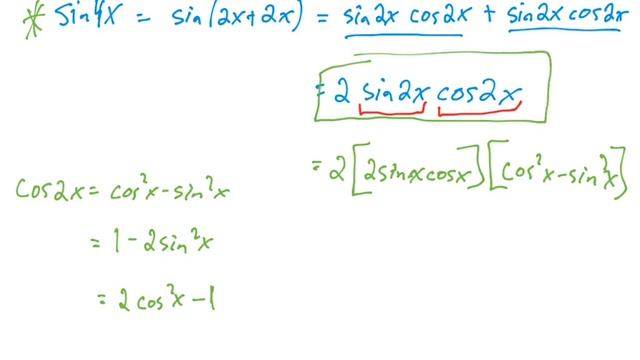 * Sin4x = sin(2x+2x) = sin2x cos2x + sin2x cos2x
= 2 sin2x cos2x
= 2[2sinxcosx][cos²x-sin²x]
cos2x = cos²x-sin²x
= 1-2sin²x
= 2cos²x-1